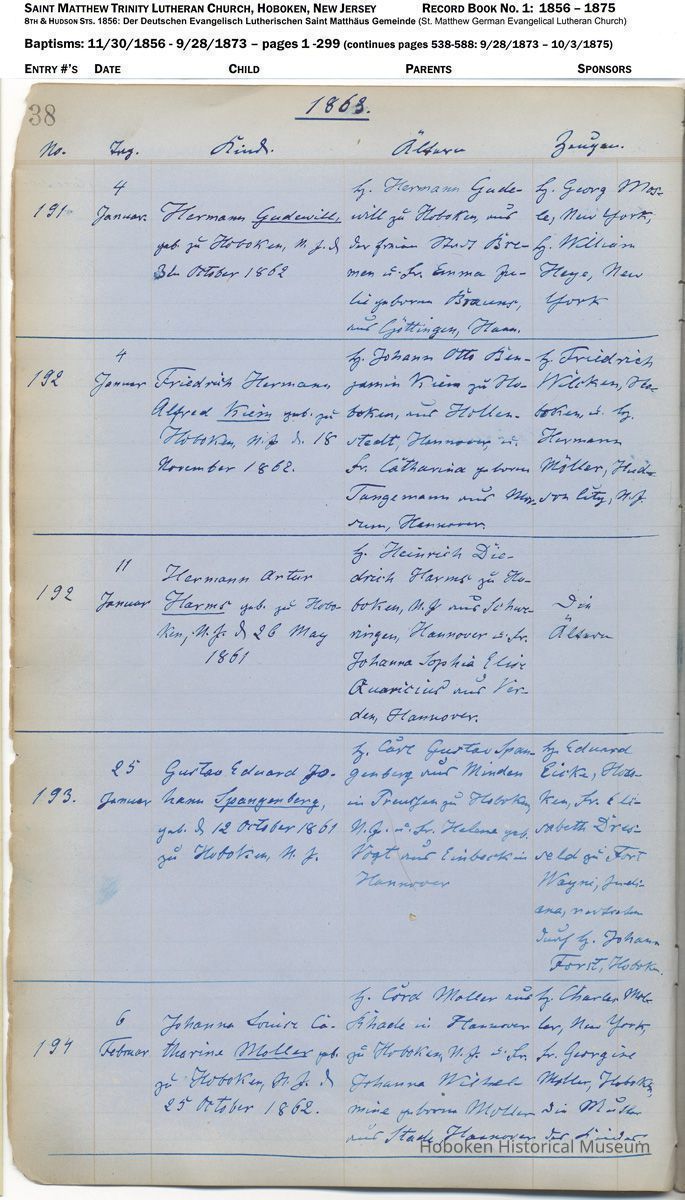 SAINT MATTHEW TRINITY LUTHERAN CHURCH, HOBOKEN, NEW JERSEY RECORD BOOK NO. 1: 1856 – 1875
8TH & HUDSON STS. 1856: Der Deutschen Evangelisch Lutherischen Saint Matthäus Gemeinde (St. Matthew German Evangelical Lutheran Church)
Baptisms: 11/30/1856 - 9/28/1873 – pages 1 -299 (continues pages 538-588: 9/28/1873 – 10/3/1875)
ENTRY #'S DATE CHILD PARENTS SPONSORS
38
1863.
No. Tag. Kind. Ältern Zeugen.
191
4
Januar.
Hermann Gudewill,
geb. zu Hoboken, N. J. d.
October 1862
H. Hermann Gude-
will zu Hoboken, aus
der freien Stadt Bre-
men u. Fr. Emma Ju-
lie geborne Brauns,
aus Göttingen, Hann.
H. Georg Mos-
le, New York,
H. William
Heye, New
York
192
4
Januar
Friedrich Hermann
Alfred geb. zu
Hoboken, N. J. d. 18
November 1862.
H. Johann Otto Ben-
jamin zu Ho-
boken, aus Hollen-
stedt, Hannover, u.
Fr. Catharina geborne
Tangemann aus
Hannover.
H. Friedrich
Wilcken, Ho-
boken, u. H.
Hermann
Möller, Hud-
son City, N. J.
192
11
Januar
Hermann Artur
Harms geb. zu Hobo-
ken, N. J. d. 26 May
1861
H. Heinrich Die-
drich Harms zu Ho-
boken, N. J. aus
Hannover u. Fr.
Johanna Sophia Elise
Quaricius aus Ver-
den, Hannover.
Die
Ältern
193.
25
Januar
Gustav Eduard Jo-
hann Spangenberg,
geb. d. 12 October 1861
zu Hoboken, N. J.
H. Carl Gustav Span-
genberg aus Minden
in Preußen zu Hoboken,
N. J. u. Fr. Helene geb.
Vogt aus Einbeck in
Hannover
H. Eduard
Hobo-
ken, Fr. Eli-
sabeth Dres-
zu Fort
Wayne, Indi-
ana, vertreten
durch H. Johann
Forst, Hoboken.
194
6
Februar
Johanna Louise Ca-
tharine Moller geb.
zu Hoboken, N. J. d.
25 October 1862.
H. Cord Moller aus
in Hannover
zu Hoboken, N. J. u. Fr.
Johanna Wilhel-
mine geborne Moller
aus Stade, Hannover
H. Charles Mol-
ler, New York,
Fr. Georgine
Moller, Hoboken,
die Mutter
des Kindes
Hoboken Historical Museum